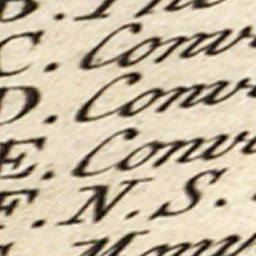 C. Conv
D. Conv
E. Conv
F. N. S.